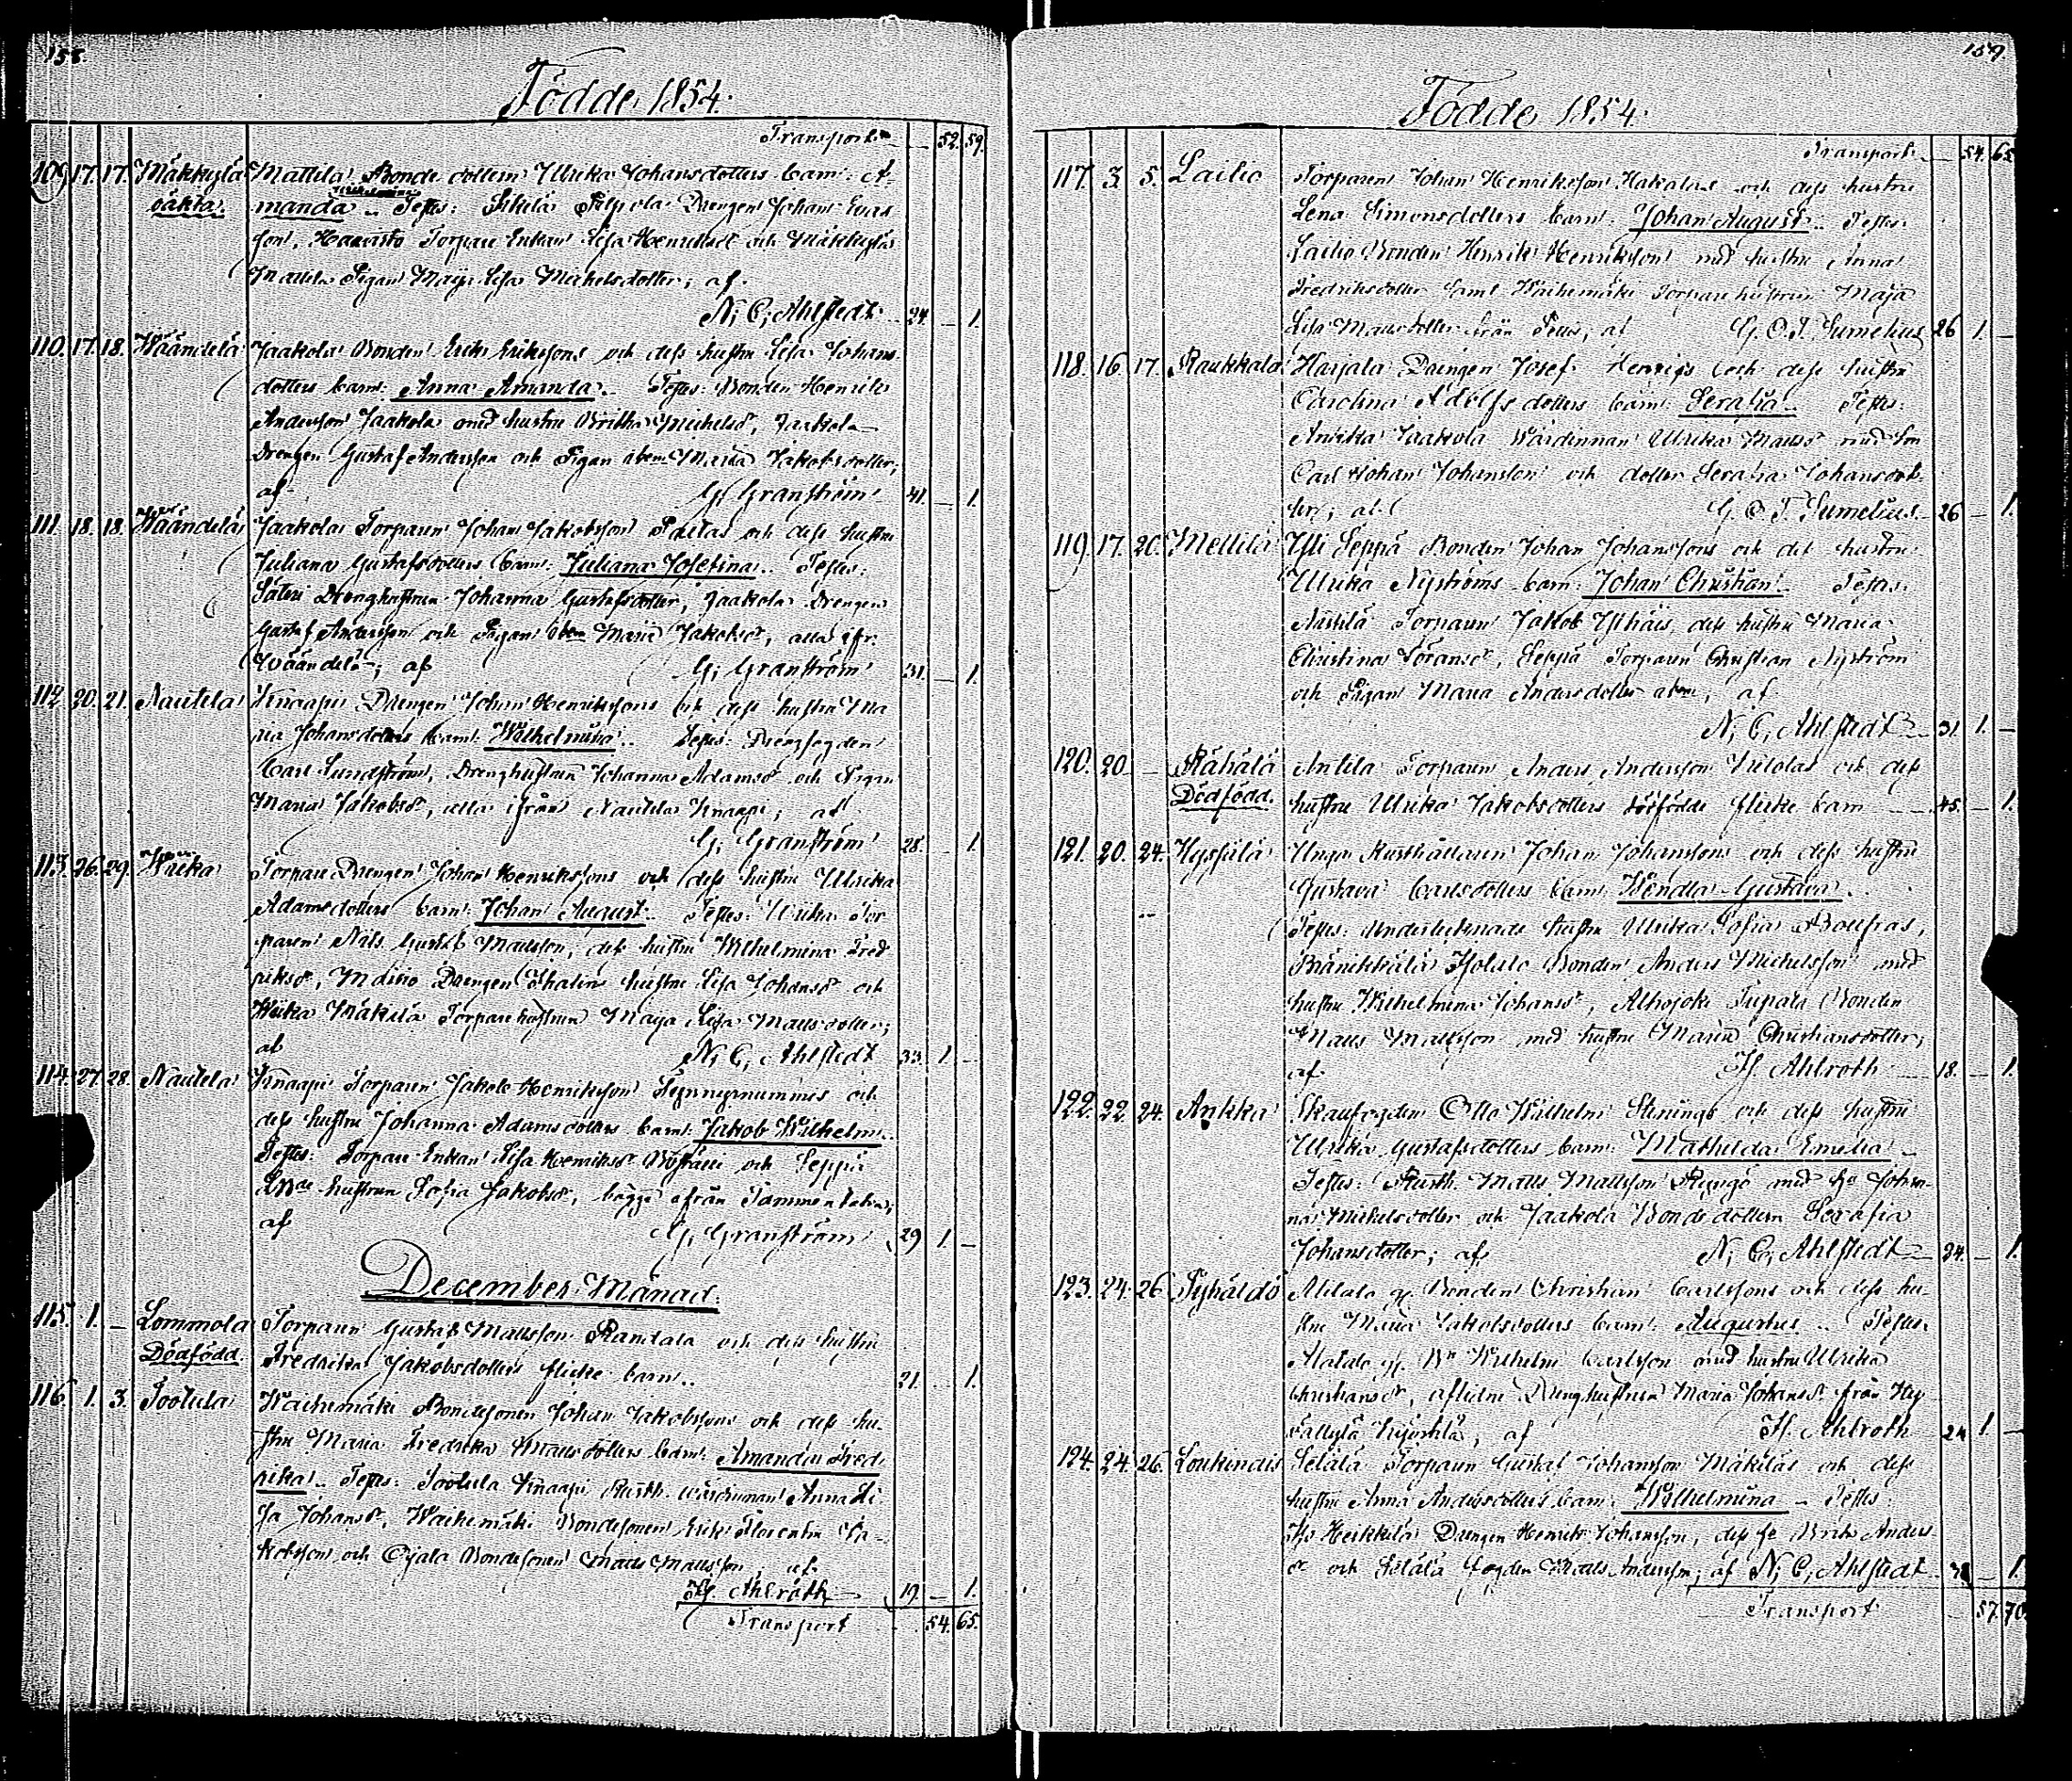 158.
Födde 1854.
Transport — 52. 59.
109. 17. 17. Mäkkylä Mattila Bonde dottern Ulrika Johansdotters barn: A-
oäkta. manda Wilhelmina.. Testes: Drengen Johan
son, Haavisto Torpare Enkan Lisa och Mäkkylä
Mattila Pigan Maja Lisa Michelsdotter; af
N. C. Ahlstedt. 24. — 1.
110. 17. 18. Wäändelä Jaakola Bonden Erik Erikssons och dess hustru Lisa Johans-
dotters barn: Anna Amanda.. Testes: Bonden Henrik
Andersson Jaakola med hustru Britha Michelsdr, Jaakola
Drengen Gustaf Andersson och Pigan Maria Jakobsdotter;
af G. Granström 41. — 1.
111. 18. 18. Wäändelä Jaakola Torparen Johan Jakobsson Paltas och dess hustru
Juliana Gustafsdotters barn: Juliana Josefina.. Testes:
Säteri Drenghustrun Johanna Gustafsdotter, Jaakola Drengen
Gustaf Andersson och Pigan Maria Jakobsdr, alla ifr:
Wäändelä; af G. Granström 31. — 1.
112. 20. 21. Nautela Knaapi Drengen Johan Henrikssons och dess hustru Ma
ria Johansdotters barn: Wilhelmina.. Testes: Drengfogden
Carl Sundström, Drenghustrun Johanna Adamsdr och Pigan
Maria Jakobsdr, alla ifrån Nautela Knaapi; af
G. Granström 28. — 1.
113. 26. 29. Wiika Torpare Drengen Johan Henrikssons och dess hustru Ulrika
Adamsdotters barn: Johan August.. Testes: Wiika Tor
paren Nils Gustaf Mattsson, dess hustru Wilhelmina Fred
riksdr, Drengen hustru Lisa Johansdr och
Wiika Mäkilä Torpare hustrun Maja Lisa Mattsdotter;
af N. C. Ahlstedt 33. 1. —
114. 27. 28. Nautela Knaapi Torparen Jakob Henriksson och
dess hustru Johanna Adamsdotters barn: Jakob Wilhelm.
Testes: Torpare Enkan Lisa Henriksdr och Seppä
hustrun Sofia Jakobsdr, bägge ifrån
af G. Granström 29 1. —
December Månad.
115. 1. — Lommola Torparen Gustaf Mattsson Randala och dess hustru
Dödfödd. Fredrika Jakobsdotters flicke barn.. 21. — 1.
116. 1. 3. Tootula Waihemäki Bondesonen Johan Jakobssons och dess hu-
stru Maria Fredrika Mattsdotters barn: Amanda Fred-
rika.. Testes: Tootula Knaapi Rusth. wärdinnan Anna Li
sa Johansdr, Waihemäki Bondesonen Erik Florentin Ja-
kobsson och Ojala Bondesonen Matts Mattsson, af
H. Ahlroth — 19. — 1.
Transport 54. 65.
159.
Födde 1854.
Transport — 54. 65.
117. 3. 5. Lailio Torparen Johan Henriksson Hakalas och dess hustru
Lena Simonsdotters barn: Johan August.. Testes:
Lailio Bonden Henrik Henriksson med hustru Anna
Fredriksdotter samt Waihemäki Torpare hustrun Maja
Lisa Mattsdotter från af G. O. T. Sumelius 26 1. —
118. 16. 17. Raukkala Harjala Drengen Josef Henrigs och dess hustru
Carolina Adolfsdotters barn: Serafia.. Testes:
Anvika Jaakola Wärdinnan Ulrika Mattsdr med son
Carl Johan Johansson och dotter Serafia Johansdot-
ter; af G. O. T. Sumelius 26 — 1.
119. 17. 20. Mellilä Yli Seppä Bonden Johan Johanssons och dess hustru
Ulrika Nyströms barn: Johan Christian.. Testes:
Torparen Jakob dess hustru Maria
Christina Göransdr, Seppä Torparen Christian Nyström
och Pigan Maria Andersdotter af
N. C. Ahlstedt — 31. 1. —
120. 20. — Rähälä Anttila Torparen Anders Andersson och dess
Dödfödd. hustru Ulrika Jakobsdotters dödfödde flicke barn — 45. — 1.
121. 20. 24. Hypsilä Unga Rusthållaren Johan Johanssons och dess hustru
Gustava Carlsdotters barn: Wendla Gustava.
Testes: Underlieutnants hustru Ulrika Sofia
Bränikkälä Isotalo Bonden Anders Michelsson med
hustru Wilhelmina Johansdr, Alhojoki Tupala Bonden
Matts Mattsson med hustru Maria Christiansdotter;
af H. Ahlroth — 18. — 1.
122. 22. 24. Ankka Skaufogden Otto Wilhelm Stenings och dess hustru
Ulrika Gustafsdotters barn: Mathilda Emelia..
Testes: Rusth. Matts Mattsson med hu Johan-
na Michelsdotter och Jaakola Bonde dottern Serafia
Johansdotter; af N. C. Ahlstedt 34. — 1.
123. 24. 26. Pyhäldö Alitalo Bonden Christian Carlssons och dess hu-
stru Maria Jakobsdotters barn: Augustus.. Testes:
Alatalo Wilhelm Carlsson med hustru Ulrika
Christiansdr, aflidne Drenghustrun Maria Johansdr från
af H. Ahlroth 24 1. —
124. 24. 26. Loukinais Seläla Torparen Gustaf Johansson Mäkiläs och dess
hustru Anna Andersdotters barn: Wilhelmina.. Testes:
Iso Heikkilä Drengen Henrik Johansson, dess hu Brita Anders-
dr och Seläla fogden Matts Andersson; af N. C. Ahlstedt. — 1.
Transport 57. 70.